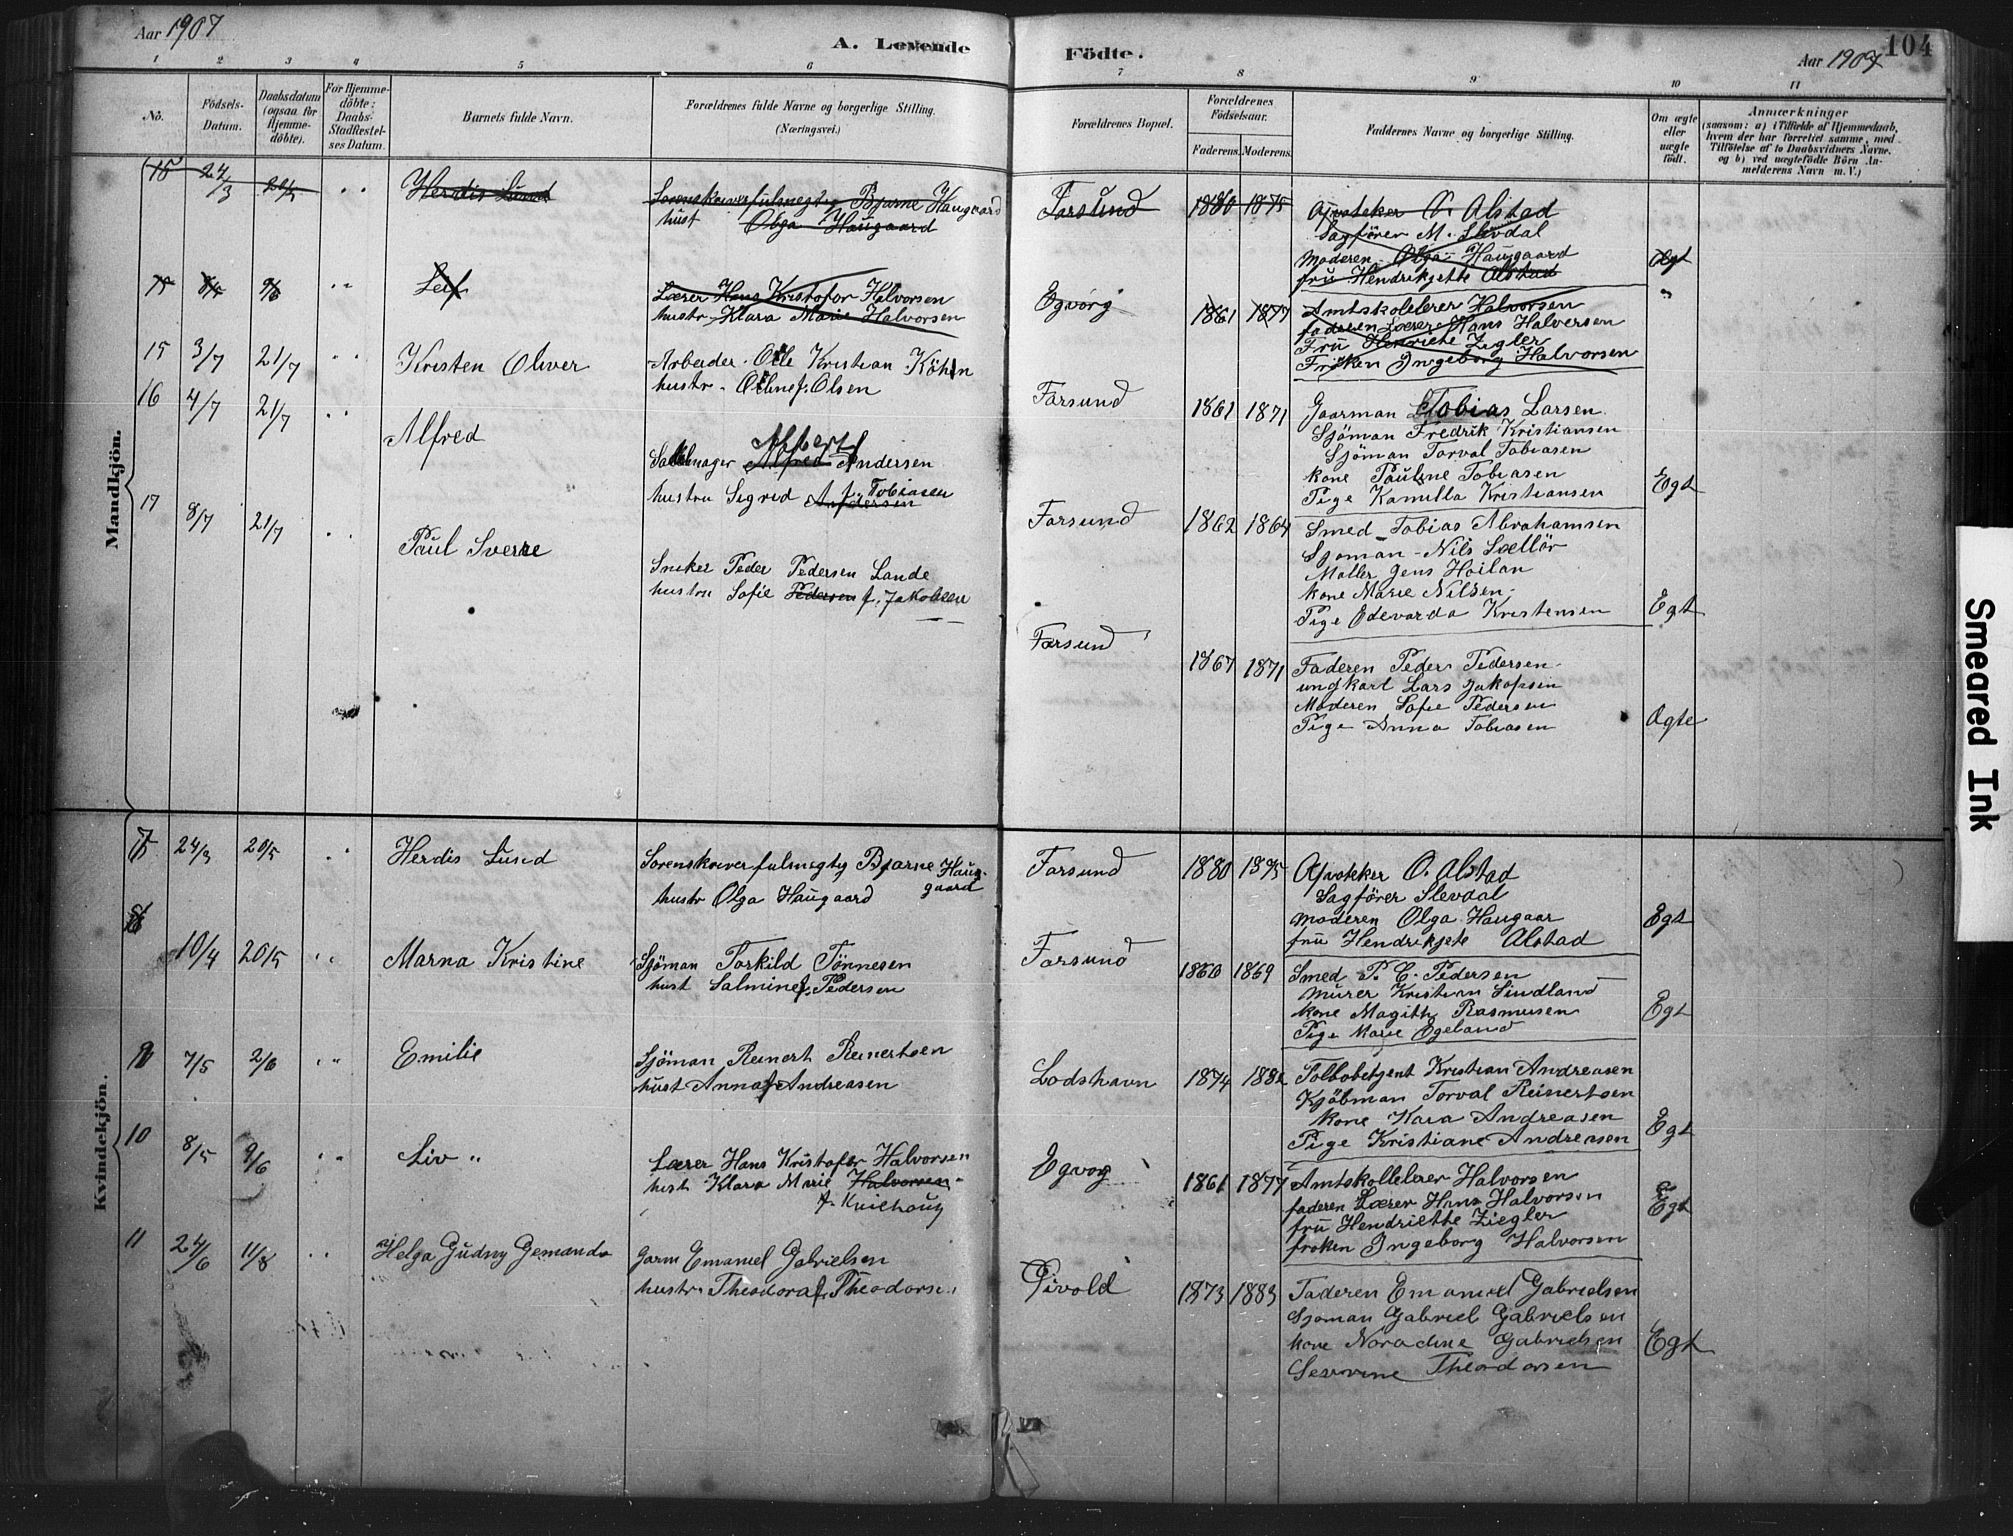 Aar 1907
A. Levende
Födte.
Aar 1907
104
1 2 3 4 5 6 7 8 9 10 11
No.
Födsels-
Datum.
Daabsdatum
(ogsaa for
Hjemme-
döbte).
For Hjemme-
döbte:
Daabs-
Stadfæstel-
ses Datum.
Barnets fulde Navn.
Forældrenes fulde Navne og borgerlige Stilling.
(Næringsvei.)
Forældrenes Bopæl.
Forældrenes
Födselsaar.
Faderens. Moderens.
Faddernes Navne og borgerlige Stilling.
Om ægte
eller
uægte
födt.
Anmærkninger
(saasom: a) i Tilfælde af Hjemmedaab,
hvem der har forrettet samme, med
Tilföielse af to Daabsvidners Navne.
og b) ved uægtefödte Börn An-
melderens Navn m. V.)
Mandkjön.
15 24/3 20/5 " Herdis Lund
Sorenskriverfulmegtig Bjarne Haugaard
hust Olga Haugaard
Farsund 1880 1875
Apoteker O. Alstad
Sagförer M. Slevdal
Moderen Olga Haugaard
fru Hendrikjette Alstad
Egt
8/5 9/6 " Leif
Lærer Hans Kristofor Halvorsen
hustr Klara Marie Halvorsen
Egvorg 1861 1877
Amtskolelærer Halvorsen
faderen Lærer Hans Halversen
Fru Henriette Zigler
Fröken Ingeborg Halvorsen
15 3/7 21/7 " Kristen Oliver
Arbeider Olle Kristian Köhn
hustr. Oline f. Olsen
Farsund 1861 1871
Gaarman Tobias Larsen
Sjöman Fredrik Kristiansen
Sjöman Torval Tobiasen
kone Pauline Tobiasen
Pige Kamilla Kristiansen
Egt
16 4/7 21/7 " Alfred
Albert
Salmager Alfred Andersen
hustru Sigrid Andersen f. Tobiasen
Farsund 1862 1864
Smed Tobias Abrahamsen
Sjoman Nils Sællör
Maller Jens Hoilan
kone Marie Nilsen
Pige Edevarda Kristensen
Egt
17 8/7 21/7 " Paul Sverre
Sneker Peder Pedersen Lande
hustru Sofie Pedersen f. Jakobsen
Farsund 1867 1871
Faderen Peder Pedersen
ungkarl Lars Jakopsen
Moderen Sofie Pedersen
Pige Anna Tobiasen
Ogte
Kvindekjön.
7 24/3 20/5 " Herdis Lund
Sorenskriverfulmegtig Bjarne Haug-
gaard
hustr Olga Haugaard
Farsund 1880 1875
Apoteker O. Alstad
Sagförer Slevdal
Moderen Olga Haugaar
fru Hendrikjete Alstad
Egt
8 10/4 20/5 " Marna Kristine
Sjöman Torkild Tönnesen
hust Salmine f. Pedersen
Farsund 1860 1869
Smed P. C. Pedersen
Murer Kristian Lindland
kone Magith Rasmusen
Pige Marie Egeland
Egt
9 7/5 2/6 " Emilie
Sjöman Reinert Reinertsen
hust Anna f. Andreasen
Lodshavn 1874 1882
Tolbobetjent Kristian Andreasen
Kjöbman Torval Reinertsen
kone Kara Andreasen
Pige Kristiane Andreasen
Egt
10 8/5 9/6 " Liv "
Lærer Hans Kristofor Halvorsen
hust Klara Marie Halvorsen
f. Kniehoug
Egvog 1861 1877
Amtskollelærer Halvorsen
faderen Lærer Hans Halvorsen
fru Hendriette Ziegler
froken Ingeborg Halvorsen
Egt
11 24/6 11/8 " Helga Gudny Gemanda
Garm Emanuel Gabrielsen
hustr. Theodora f. Theodorsen
Øivold 1873 1883
Faderen Emanuel Gabrielsen
Sjoman Gabriel Gabrielsen
kone Noradine Gabrielsen
Severine Theodorsen
Egt
Smeared Ink